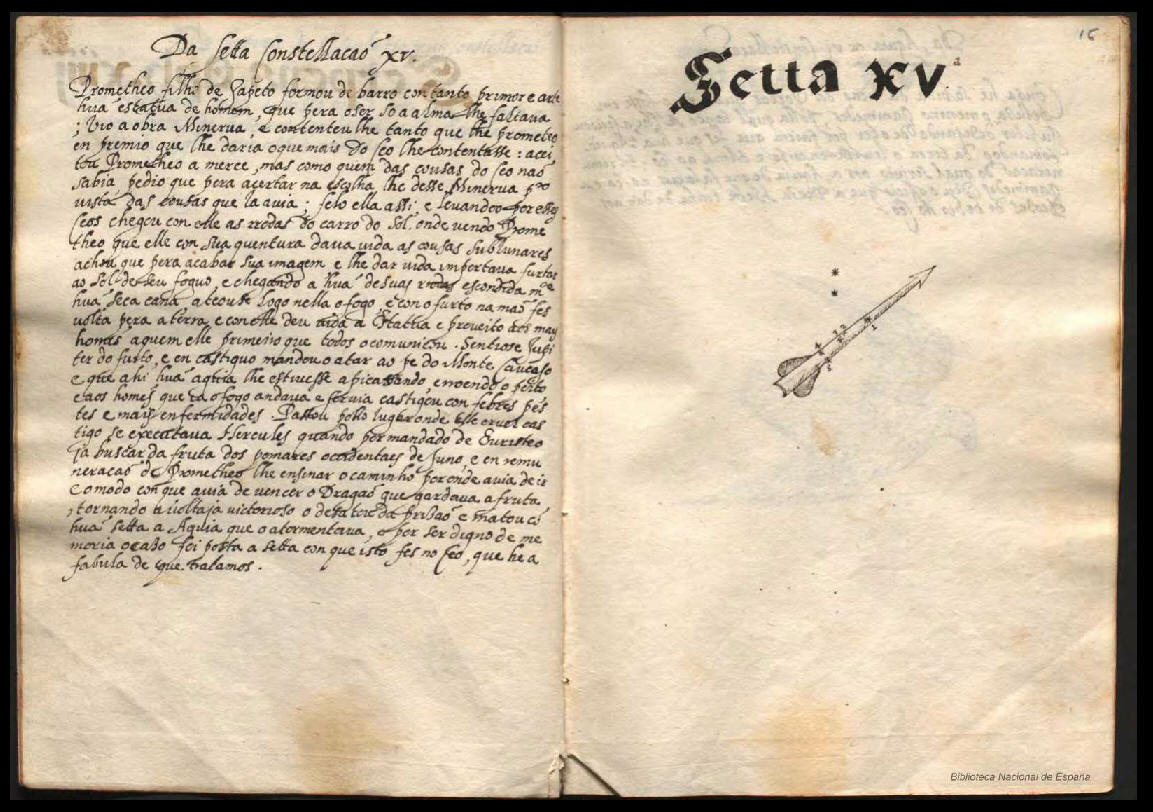 Da setta Constellacaõ xv.
Prometheo filho de Iapeto formou de barro con tanto primor e arte
hũa estatua de homem, que pera o ser so a alma lhe faltava
; vio a obra Minerva, e contentoulhe tanto que lhe prometeo
en premio que lhe daria o que mais do ceo lhe contentasse: acei
tou Prometheo a merce, mas como quem das cousas do ceo naõ
sabia, pedio que pera acertar na escolha lhe desse Minerva
vista das cousas que la avia; felo ella assi; e levandoo por esses
ceos chegou con elle as rrodas do carro do Sol, onde vendo Prome
theo que elle con sua quentura dava vida as cousas sublunares
achou que pera acabar sua imagem e lhe dar vida importava furtar
ao Sol de seu foguo, e chegando a hũa de suas rrodas escondida
hũa seca cana ateouse logo nella o fogo, e con o furto na maõ fes
volta pera a terra, e con elle deu vida a Estattua e proveito aos mais
homẽs a quem elle primeiro que todos o comunicou. Sentiose Iupi
ter do furto, e en castiguo mandou o atar ao pe do Monte Caucaso
e que ahi hũa aguia lhe estivesse a picando e roendo o peito
e aos homẽs que ia o fogo andava e servia castigou con febres pes
tes e mais enfermidades. Passou pollo lugar onde este cruel cas
tigo se executava Hercules quando por mandado de Euristeo
ia buscar da fruta dos pomares occidentaes de Iuno, e en remu
neracaõ de Prometheo lhe ensinar o caminho por onde avia de ir
e o modo con que avia de vencer o Dragaõ que gardava a fruta
, tornando a volta ja victorioso o desatou da prisaõ e matou cõ
hũa setta a Aguia que o atormentava, e por ser digno de me
moria o caso foi posta a setta con que isto fes no ceo, que he a
fabula de que tratamos.
16
Setta XV
1
Biblioteca Nacional de España